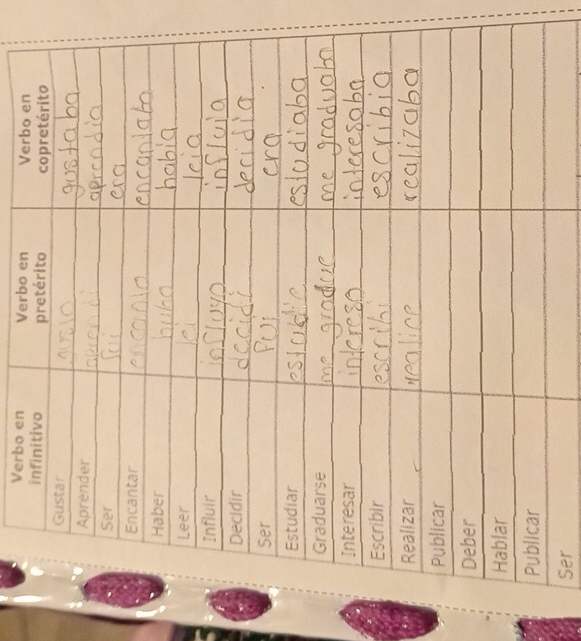 Verbo en infinitivo Verbo en pretérito Verbo en copretérito
Gustar gusto gustaba
Aprender aprendi aprendia
Ser fui era
Encantar encanto encantaba
Haber hubo habia
Leer lei leia
Influir influyo influia
Decidir decidi decidia.
Ser fui era
Estudiar estudie estudiaba
Graduarse me gradue me graduaba
Interesar intereso interesaba
Escribir escribi escribia
Realizar realice realizaba
Publicar
Deber
Hablar
Publicar
Ser